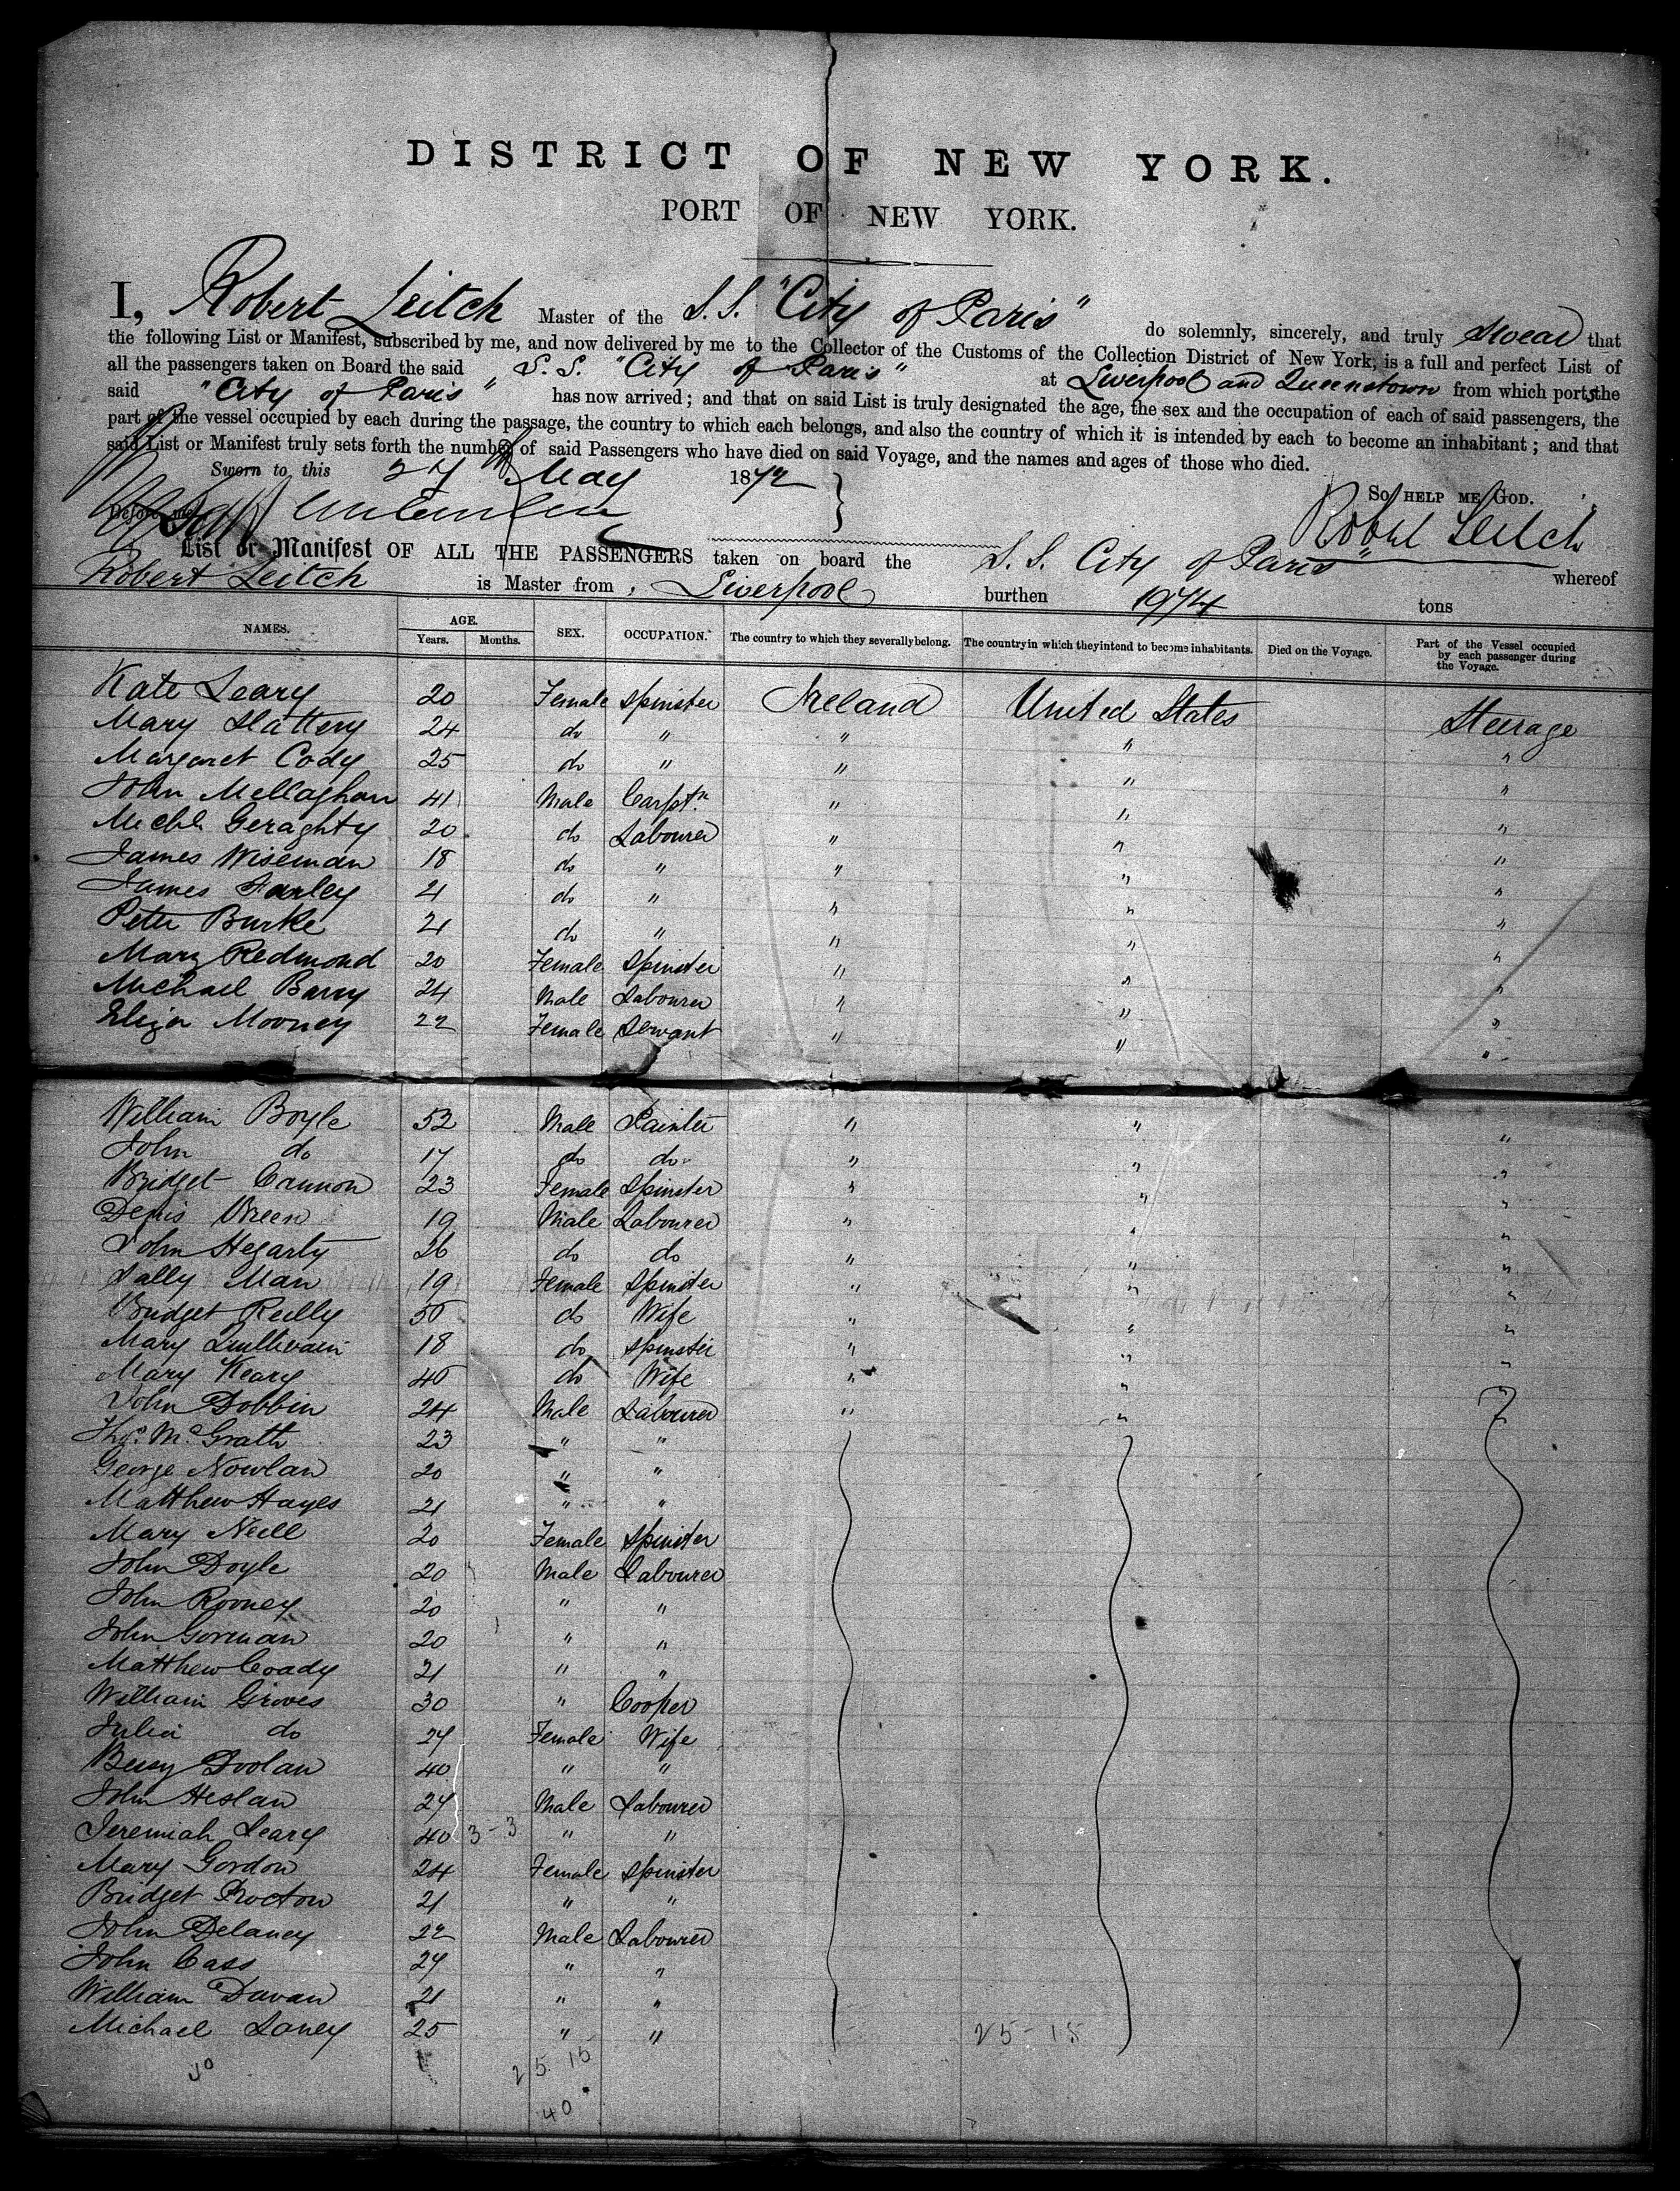 DISTRICT OF NEW YORK.
PORT OF NEW YORK.
I, Robert Leitch Master of the S.S. "City of Paris" do solemnly, sincerely, and truly Swear that
the following List or Manifest, subscribed by me, and now delivered by me to the Collector of the Customs of the Collection District of New York, is a full and perfect List of
all the passengers taken on Board the said S.S. "City of Paris" at Liverpool and Queenstown from which ports the
said "City of Paris" has now arrived; and that on said List is truly designated the age, the sex and the occupation of each of said passengers, the
part of the vessel occupied by each during the passage, the country to which each belongs, and also the country of which it is intended by each to become an inhabitant; and that
said List or Manifest truly sets forth the number of said Passengers who have died on said Voyage, and the names and ages of those who died.
Sworn to this 27 May 1872
So HELP ME GOD.
Before me
Robert Leitch
List or Manifest OF ALL THE PASSENGERS taken on board the S.S. City of Paris" whereof
Robert Leitch is Master from, Liverpool burthen 1974 tons
NAMES. AGE. Years. Months. SEX. OCCUPATION. The country to which they severally belong. The country in which they intend to become inhabitants. Died on the Voyage. Part of the Vessel occupied by each passenger during the Voyage.
Kate Leary 20 Female Spinster Ireland United States Steerage
Mary Slattery 24 do " " " "
Margaret Cody 25 do " " " "
John Mellaghan 41 Male Carpt.r " " "
Michl. Geraghty 20 do Labourer " " "
James Wiseman 18 do " " " "
James Farley 21 do " " " "
Peter Burke 21 do " " " "
Mary Redmond 20 Female Spinster " " "
Michael Barry 24 Male Labourer " " "
Eliza Mooney 22 Female Servant " " "
William Boyle 52 Male Painter " " "
John do 17 do do " " "
Bridget Cannon 23 Female Spinster " " "
Denis 19 Male Labourer " " "
John Hegarty 26 do do " " "
Sally Man 19 Female Spinster " " "
Bridget Reilly 50 do Wife " " "
Mary 18 do Spinster " " "
Mary Keary 40 do Wife " " "
John Dobbin 24 Male Labourer " "
Thos. McGrath 23 " "
George Nowlan 20 " "
Matthew Hayes 21 " "
Mary Neill 20 Female Spinster
John Doyle 20 Male Labourer
John Rooney 20 " "
John Gorman 20 " "
Matthew Coady 21 " "
William Groves 30 " Cooper
Julia do 27 Female Wife
Bessy Doolan 40 " "
John Heslan 27 Male Labourer
Jeremiah Leary 40 3-3 " "
Mary Gordon 24 Female Spinster
Bridget Procton 21 " "
John Delaney 22 Male Labourer
John Cass 27 " "
William Davan 21 " "
Michael Laney 25 " " 25-15
25 15
40